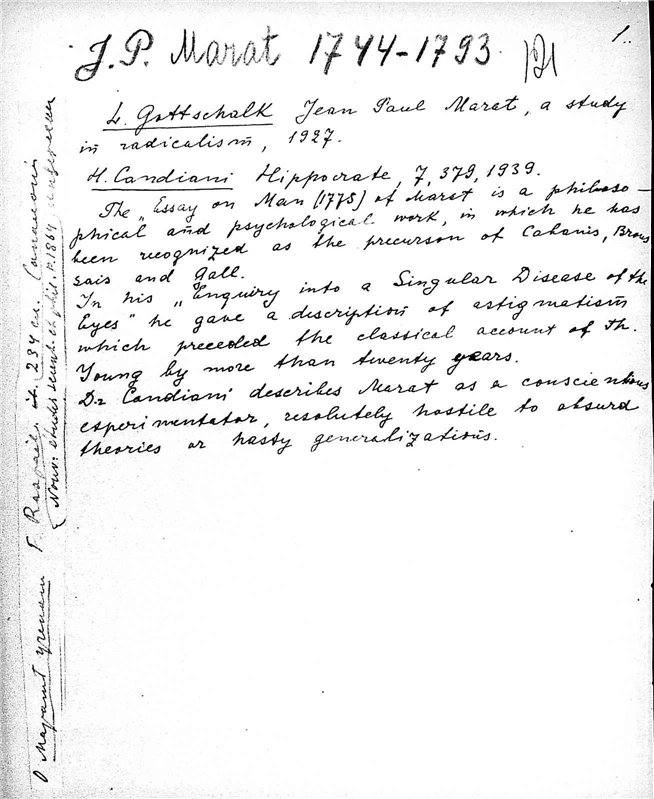 1..
J. P. Marat 1744-1793.
L. Gottschalk Jean Paul Marat, a study
in radicalism, 1927.
H. Candiani Hippocrate, 7, 379, 1939.
The „Essay on Man (1775) of Marat is a philoso-
phical and psychological work, in which he has
been recognized as the precurson of Cabanis, Brous
sais and Gall.
In his „Enquiry into a Singular Disease of the
Eyes" he gave a description of astigmatism
which preceded the classical account of Th.
Young by more than twenty years.
Dr Candiani describes Marat as a conscientious
experimentator, resolutely hostile to absurd
theories or hasty generalizations.
О Марате ученом Г. Raspail 234
Nouv. études scient. et phil. P. 1864